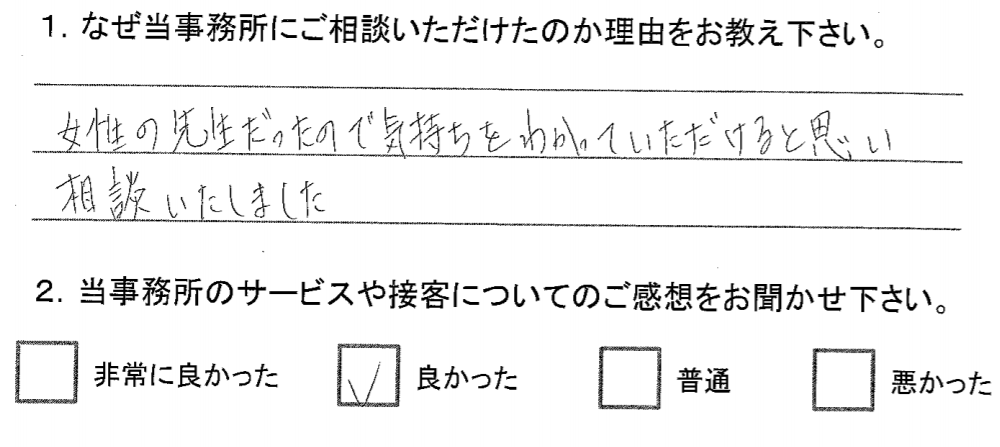 1. なぜ当事務所にご相談いただけたのか理由をお教え下さい。
女性の先生だったので気持ちをわかっていただけると思い
相談いたしました
2. 当事務所のサービスや接客についてのご感想をお聞かせ下さい。
非常に良かった 良かった 普通 悪かった